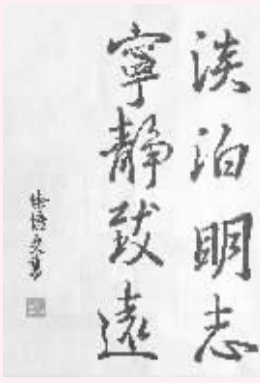 淡泊明志
寧靜致遠